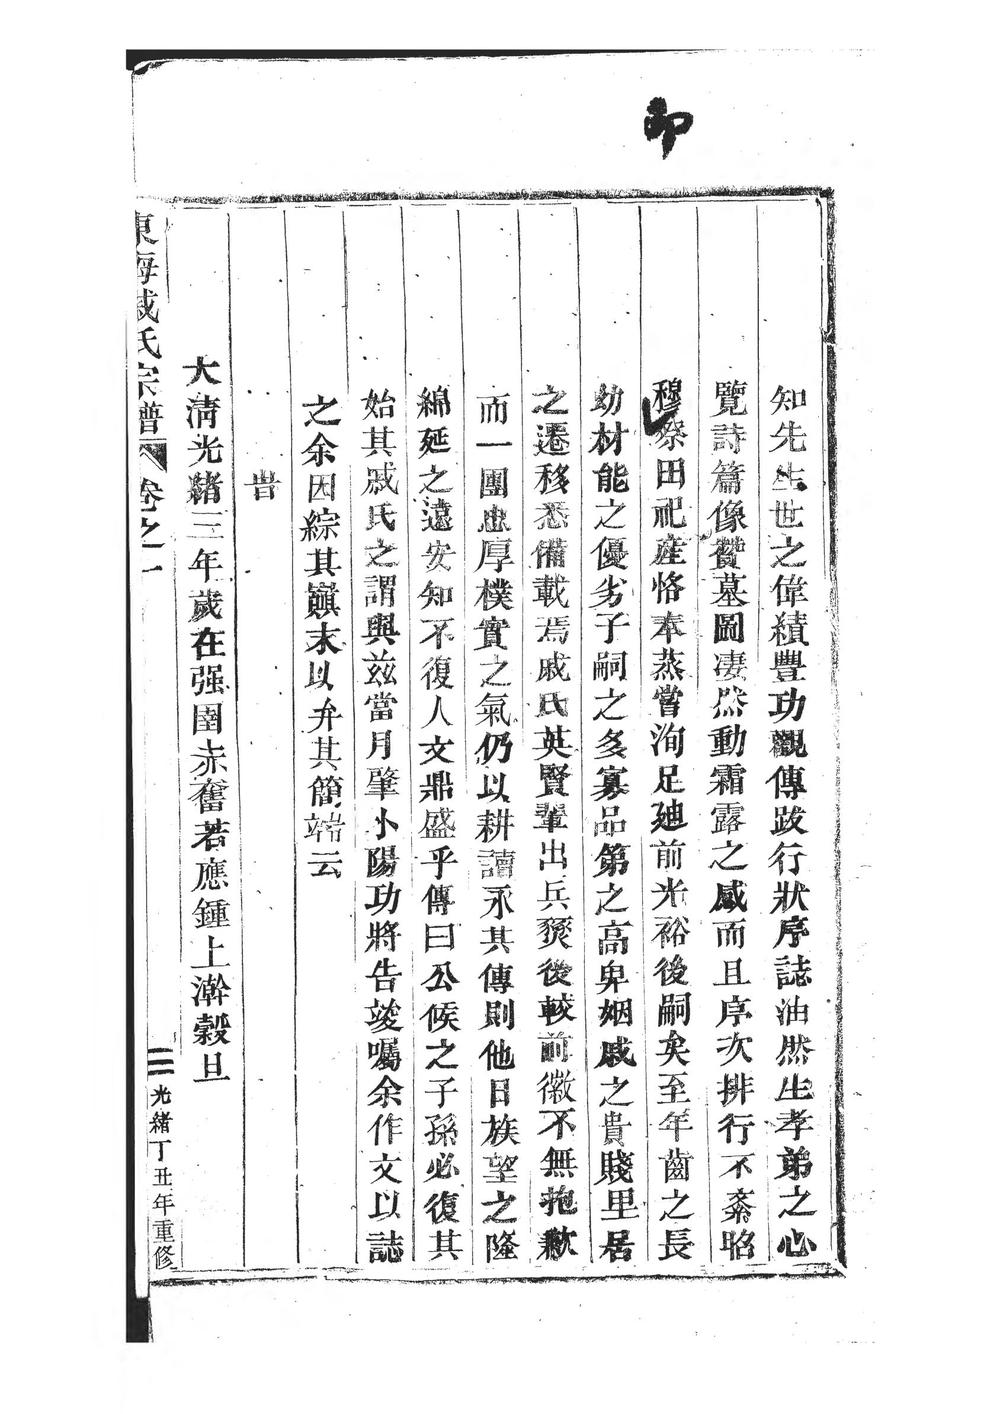 卯
知先生世之偉績豐功觀傳跋行狀序誌油然生孝弟之心
覽詩篇像贊墓圖凄然動霜露之感而且序次排行不紊昭
穆祭田祀產恪奉蒸嘗洵足廸前光裕後嗣矣至年齒之長
幼材能之優劣子嗣之多寡品第之高卑姻戚之貴賤里居
之遷移悉備載焉戚氏英賢輩出兵燹後較前徽不無抱歉
而一團忠厚樸實之氣仍以耕讀永其傳則他日族望之隆
綿延之遠安知不復人文鼎盛乎傳曰公侯之子孫必復其
始其戚氏之謂與兹當月肇小陽功將告竣囑余作文以誌
之余因綜其巔末以弁其簡端云
旹
大淸光緒三年歲在强圉赤奮若應鍾上澣穀旦
東海戚氏宗譜 卷之一
三 光緒丁丑年重修